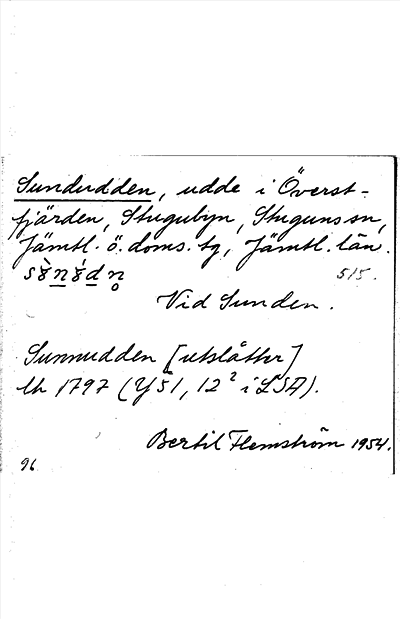 Sundudden, udde i Överst-
fjärden, Stugubyn, Stuguns sn,
Jämtl. ö. doms. tg, Jämtl. län.
515.
Vid Sunden.
Sunnudden [utslåtter]
Lh 1797 (Y51, 12² i LSA).
Bertil Flemström 1954.
96